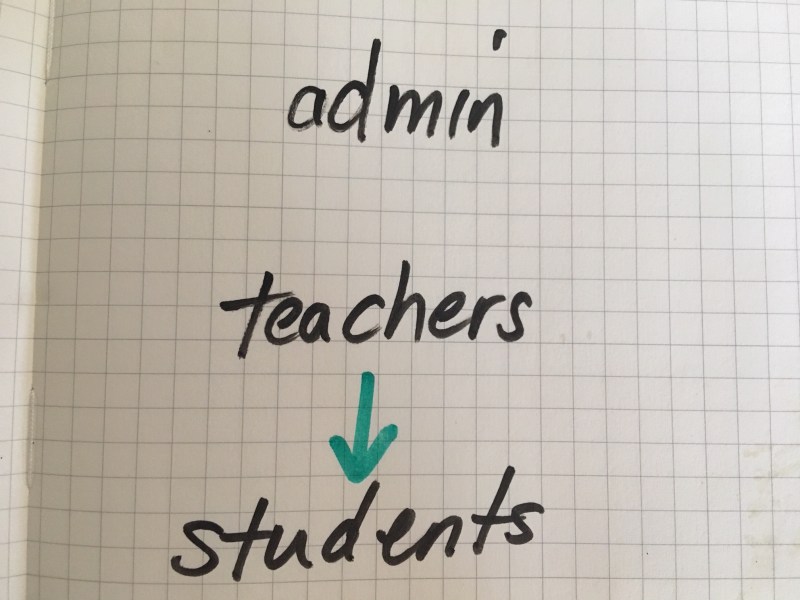 admin
teachers
students